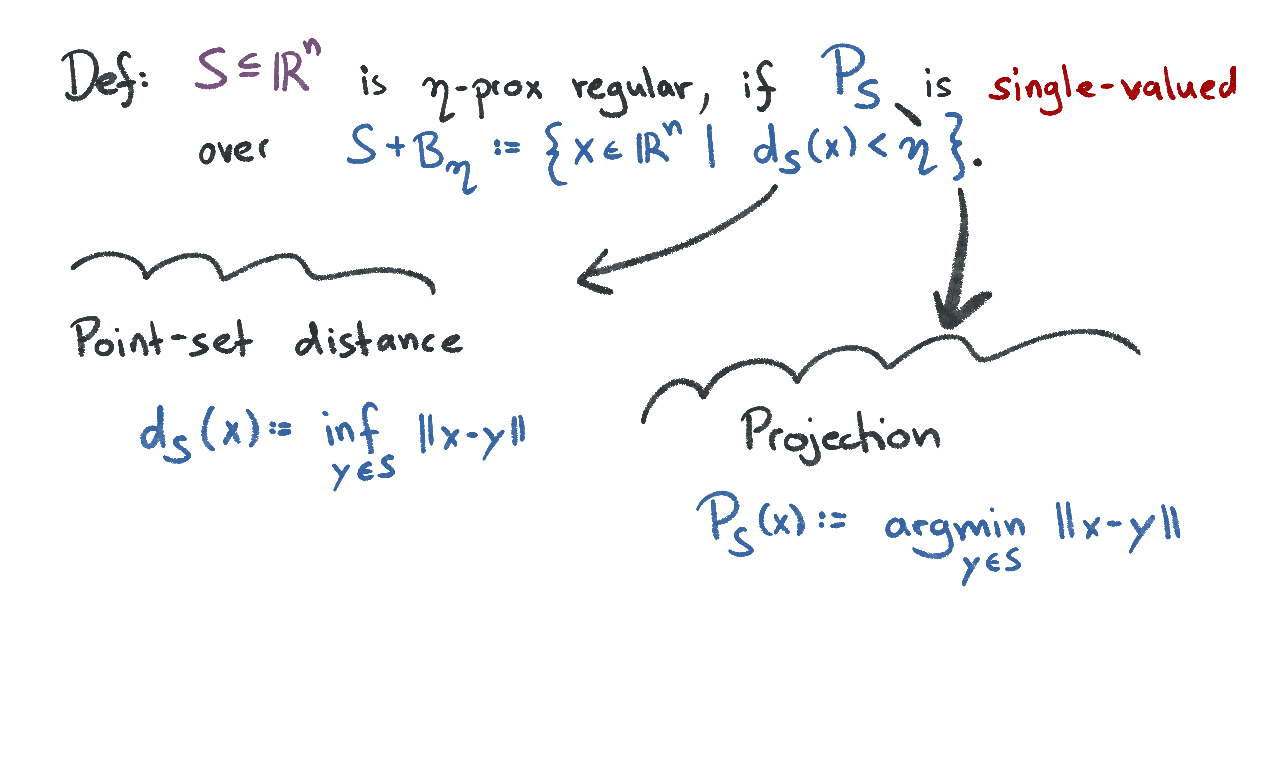 Def: S ⊆ ℝⁿ is η-prox regular, if P_S is single-valued
over S + B_η := {x ∈ ℝⁿ | d_S(x) < η}.
Point-set distance
d_S(x) := inf_{y∈S} ||x-y||
Projection
P_S(x) := argmin_{y∈S} ||x-y||